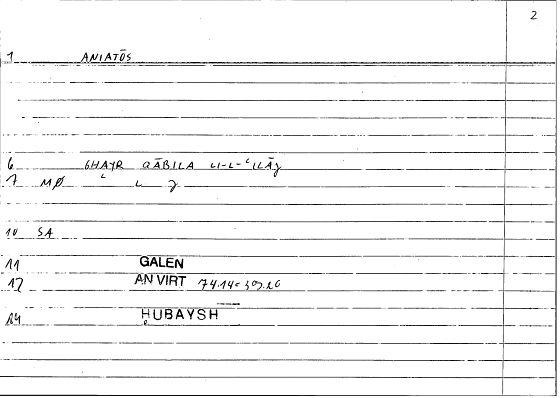 2
1 ANIATŌS
6 GHAYR QĀBILA LI-L-ʿILĀǧ
7 MØ
10 SA
11 GALEN
12 AN VIRT 74.14
14 ḤUBAYSH